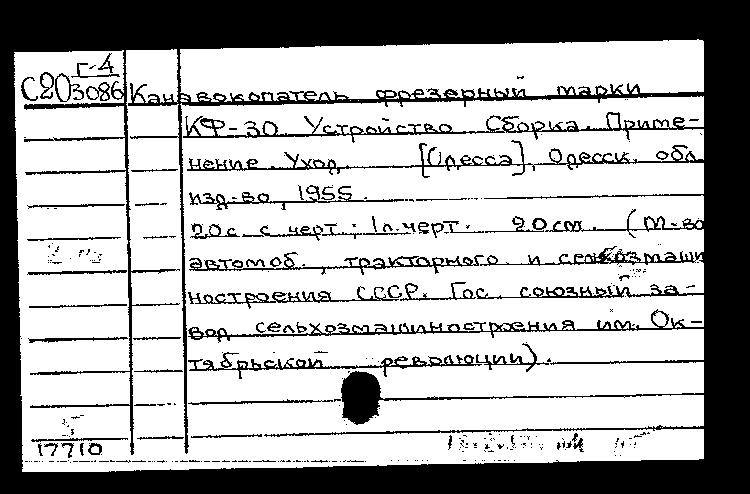 Г-4
С20 3086 Канавокопатель фрезерный марки
КФ-30. Устройство. Сборка. Приме-
нение. Уход. [Одесса], Одесск. обл.
изд-во, 1955.
20с. с черт.; 1л.черт. 20см. (М-во
автомоб., тракторного и сельхозмаши
ностроения СССР. Гос. союзный за-
вод сельхозмашиностроения им. Ок-
тябрьской революции).
17710